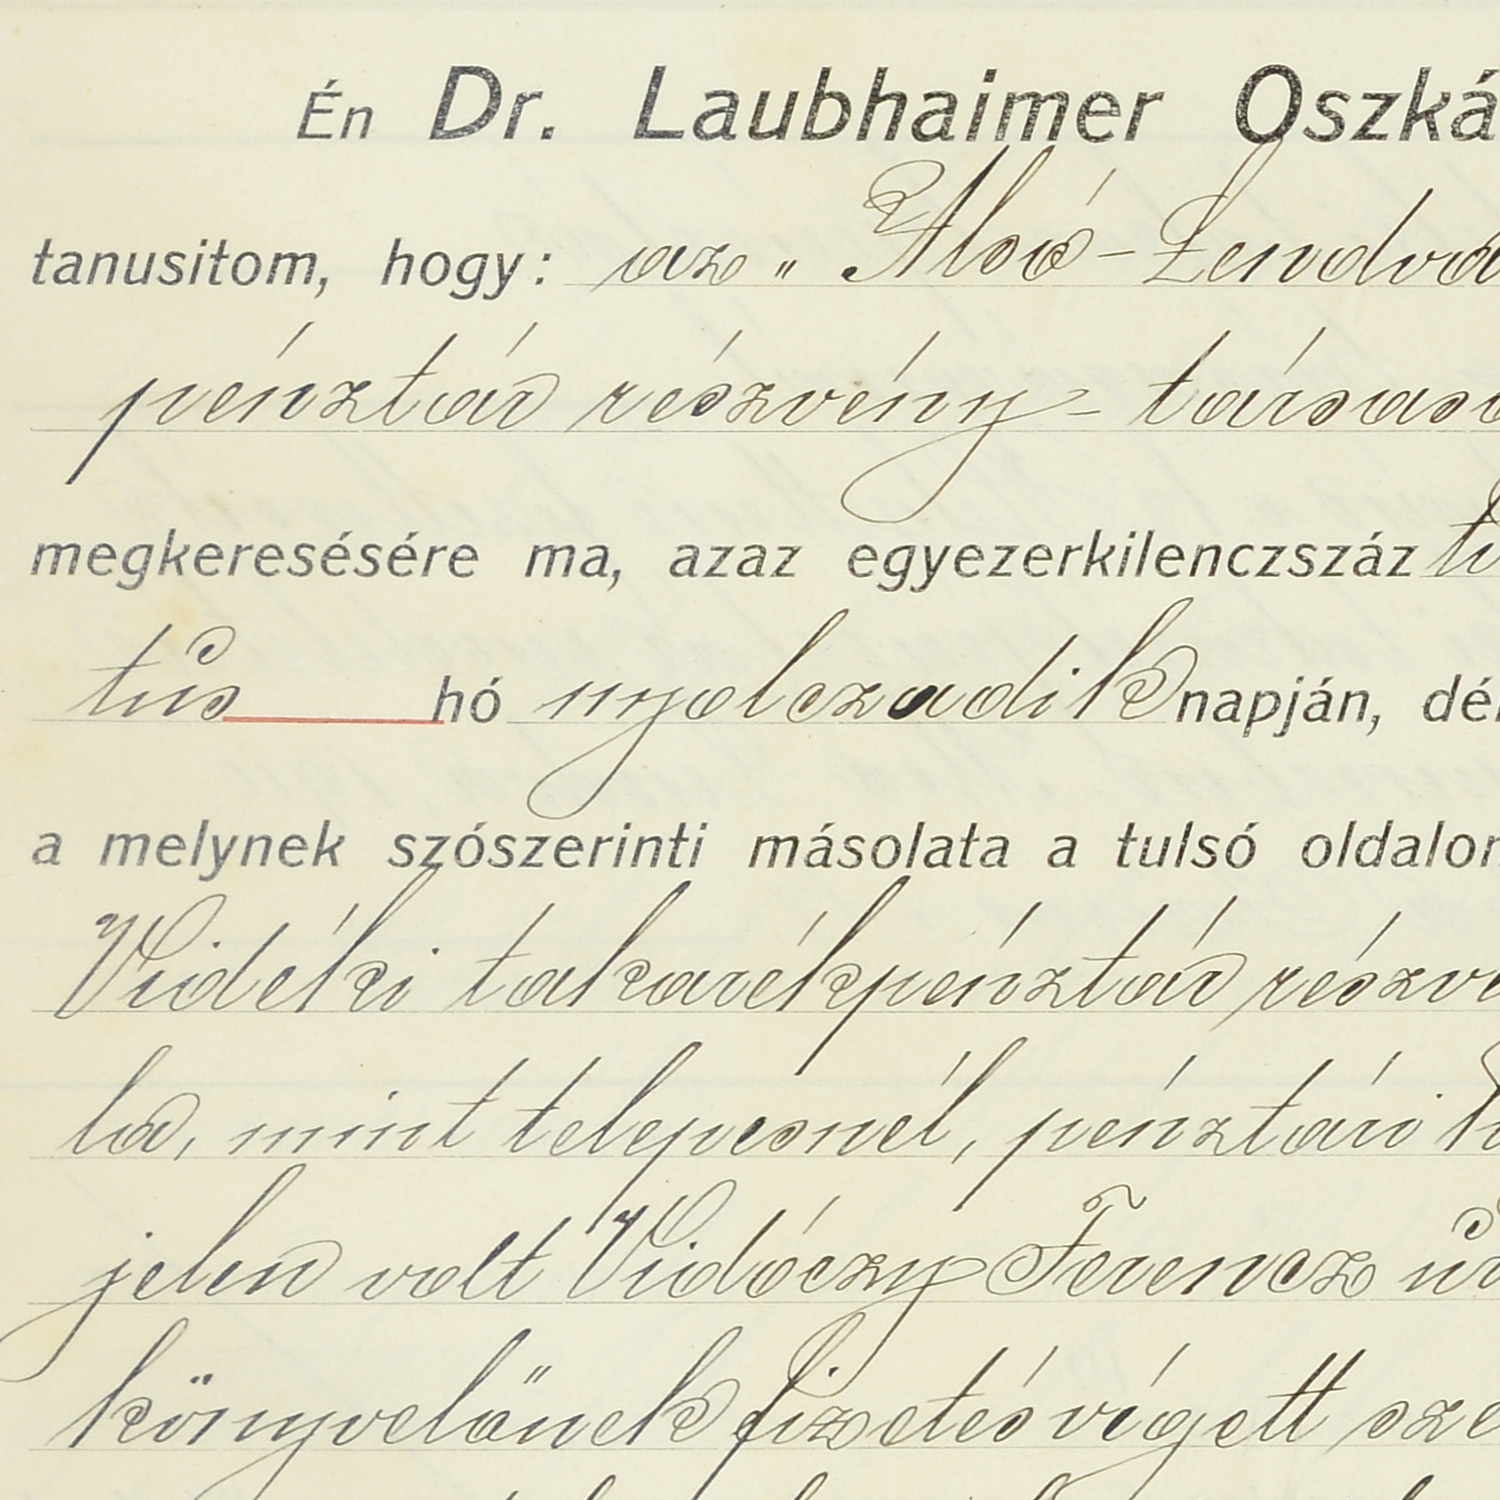 Én Dr. Laubhaimer Oszká
tanusitom, hogy: az „Alsó-Lendva
pénztár részvény-társasá
megkeresésére ma, azaz egyezerkilenczszáz ti
tus hó nyolczadik napján, dél
a melynek szószerinti másolata a tulsó oldalon
Vidéki takarékpénztár részvé
la, mint telepesnél, pénztári
jelen volt Vidóczy Ferencz úr
könyvelőnek fizetés végett sze